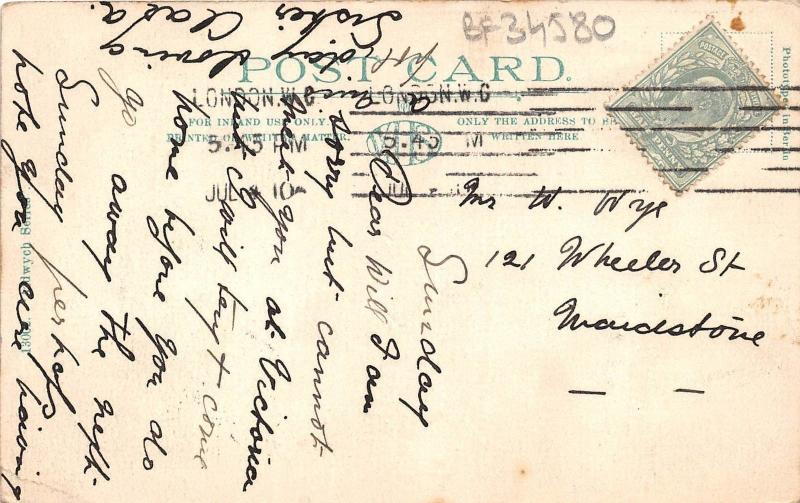 BF34580
POST CARD.
LONDON.W.C
LONDON.W.C
FOR INLAND USE ONLY
PRINTED OR WRITTEN MATTER.
ONLY THE ADDRESS TO BE
WRITTEN HERE
5.45 PM
5.45 M
JUL 10
JUL
POSTAGE
Photographed in Berlin
Aldwych Series
Mr W. Wye
121 Wheeler St
Maidstone
Sunday
Dear Will I am
sorry but cannot
meet you at Victoria
but I will try & come
home before you do
go away the next
Sunday perhaps
hope you are having
a nice
holiday
loving
Sister Clara.